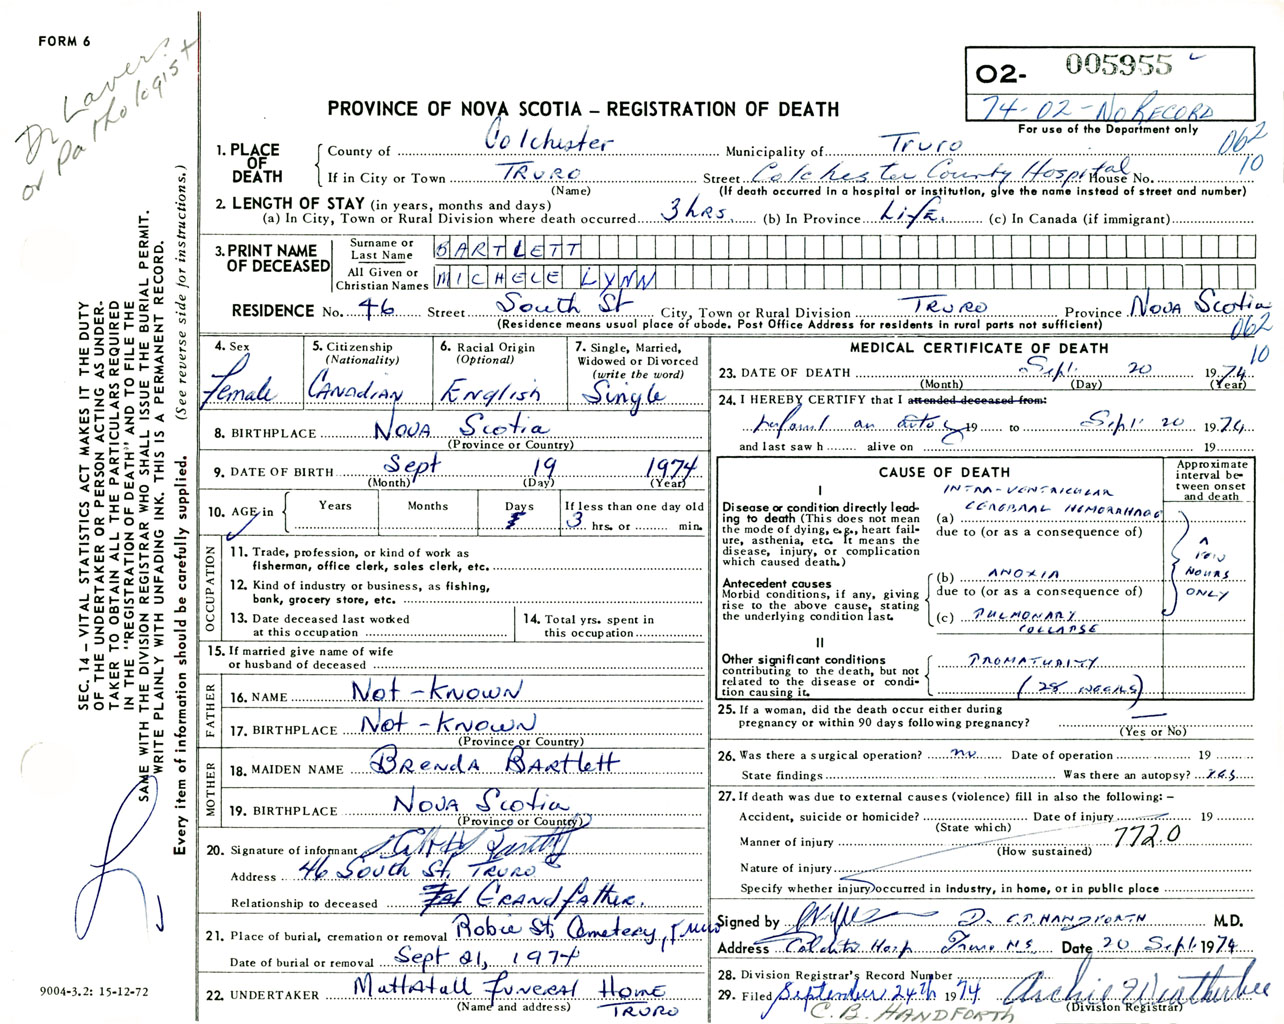 FORM 6
Dr Laver?
or Pathologist
O2- 005955
74-02-No RECORD
For use of the Department only
PROVINCE OF NOVA SCOTIA – REGISTRATION OF DEATH
062
10
1. PLACE OF DEATH
County of Colchester Municipality of Truro
If in City or Town TRURO Street Colchester County Hospital House No.
(Name) (If death occurred in a hospital or institution, give the name instead of street and number)
2. LENGTH OF STAY (in years, months and days)
(a) In City, Town or Rural Division where death occurred 3 hrs. (b) In Province Life. (c) In Canada (if immigrant)
3. PRINT NAME OF DECEASED
Surname or Last Name BARTLETT
All Given or Christian Names MICHELE LYNN
RESIDENCE No. 46 Street South St City, Town or Rural Division TRURO Province NOVA SCOTIA
(Residence means usual place of abode. Post Office Address for residents in rural parts not sufficient)
062
10
SEC. 14 – VITAL STATISTICS ACT MAKES IT THE DUTY
OF THE UNDERTAKER OR PERSON ACTING AS UNDER-
TAKER TO OBTAIN ALL THE PARTICULARS REQUIRED
IN THE "REGISTRATION OF DEATH" AND TO FILE THE
SAME WITH THE DIVISION REGISTRAR WHO SHALL ISSUE THE BURIAL PERMIT.
WRITE PLAINLY WITH UNFADING INK. THIS IS A PERMANENT RECORD.
Every item of information should be carefully supplied. (See reverse side for instructions.)
4. Sex
Female
5. Citizenship
(Nationality)
CANADIAN
6. Racial Origin
(Optional)
English
7. Single, Married,
Widowed or Divorced
(write the word)
Single
8. BIRTHPLACE NOVA Scotia
(Province or Country)
9. DATE OF BIRTH Sept 19 1974
(Month) (Day) (Year)
10. AGE in
Years Months Days If less than one day old
3 hrs. or min.
OCCUPATION
11. Trade, profession, or kind of work as
fisherman, office clerk, sales clerk, etc.
12. Kind of industry or business, as fishing,
bank, grocery store, etc.
13. Date deceased last worked
at this occupation
14. Total yrs. spent in
this occupation
15. If married give name of wife
or husband of deceased
FATHER
16. NAME Not-Known
17. BIRTHPLACE Not-Known
(Province or Country)
MOTHER
18. MAIDEN NAME Brenda Bartlett
19. BIRTHPLACE Nova Scotia
(Province or Country)
20. Signature of informant
Address 46 South St, Truro
Relationship to deceased Grandfather.
21. Place of burial, cremation or removal Robie St, Cemetery, Truro
Date of burial or removal Sept 21, 1974
22. UNDERTAKER Mattatall Funeral Home
(Name and address) TRURO
9004-3.2: 15-12-72
MEDICAL CERTIFICATE OF DEATH
23. DATE OF DEATH Sept. 20 1974
(Month) (Day) (Year)
24. I HEREBY CERTIFY that I attended deceased from:
19 to Sept 20 1974
and last saw h alive on 19
CAUSE OF DEATH
Approximate
interval be-
tween onset
and death
I
Disease or condition directly lead-
ing to death (This does not mean
the mode of dying, e.g., heart fail-
ure, asthenia, etc. It means the
disease, injury, or complication
which caused death.)
INTRA-VENTRICULAR
(a) CEREBRAL HEMORRHAGE
due to (or as a consequence of)
Antecedent causes
Morbid conditions, if any, giving
rise to the above cause, stating
the underlying condition last.
(b) ANOXIA
due to (or as a consequence of)
(c) PULMONARY
COLLAPSE
A
FEW
HOURS
ONLY
II
Other significant conditions
contributing to the death, but not
related to the disease or condi-
tion causing it.
PREMATURITY
(28 WEEKS)
25. If a woman, did the death occur either during
pregnancy or within 90 days following pregnancy? —
(Yes or No)
26. Was there a surgical operation? no Date of operation 19
State findings Was there an autopsy? YES
27. If death was due to external causes (violence) fill in also the following: –
Accident, suicide or homicide? Date of injury 19
(State which)
Manner of injury 7720
(How sustained)
Nature of injury
Specify whether injury occurred in industry, in home, or in public place
Signed by Dr. C.B. HANDFORTH M.D.
Address Colchester Hosp Truro N.S. Date 20 Sept. 1974
28. Division Registrar's Record Number
29. Filed September 24th 1974 Archie Weatherbee
(Division Registrar)
C. B. HANDFORTH